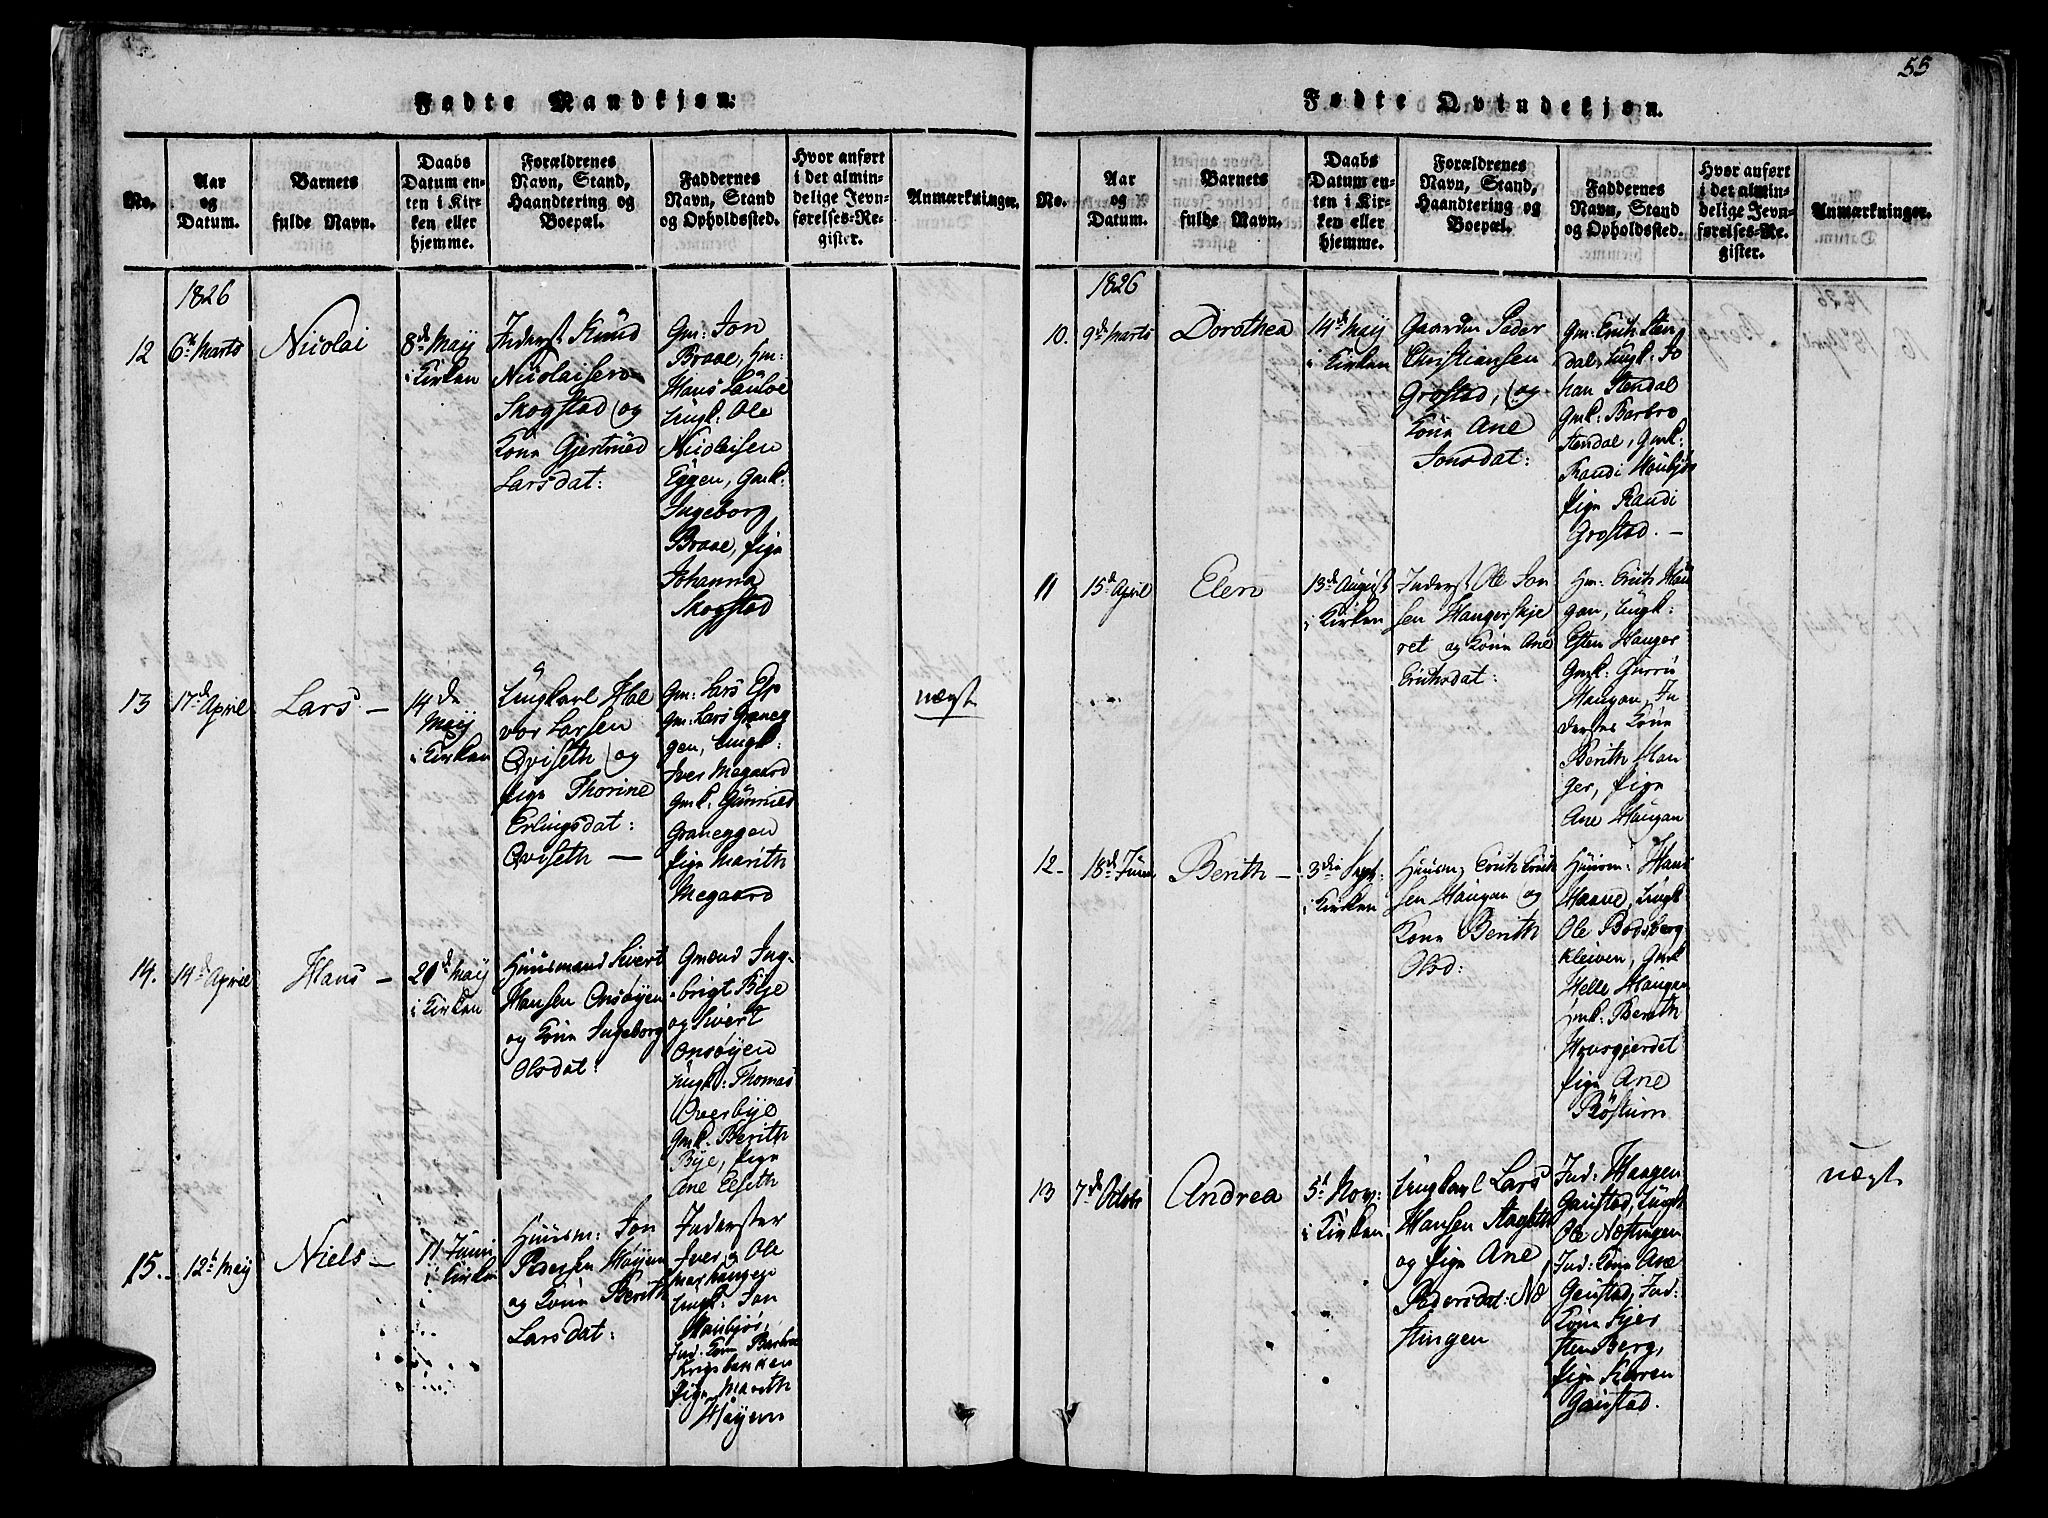 55
Fødte Mandkjøn.
No.
Aar
og
Datum.
Barnets
fulde Navn.
Daabs
Datum en-
ten i Kir-
ken eller
hjemme.
Forældrenes
Navn, Stand,
Haandtering og
Boepæl.
Faddernes
Navn, Stand
og Opholdssted.
Hvor anført
i det almin-
delige Jevn-
førelses-Re-
gister.
Anmærkninger.
1826
12
6te Marts
Nicolai
8de Maÿ
i Kirken
Inderst Knud
Nicolaisen
Skogstad og
Kone Gjertrud
Larsdat:
Gm: Jon
Braae, Hm:
Hans
Ungk: Ole
Nicolaisen
Eggen, Gmk:
Ingeborg
Braae, Pige
Johanna
Skogstad
13
17de April
Lars —
14de
Maÿ
i Kirken
Ungkarl Hal
vor Larsen
Qviseth og
Pige Thorine
Erlingsdat:
Qviseth —
Gm: Lars Esp
Gm: Lars Graneg
gen, Ungk:
Iver Megaard
Gmk: Gunnild
Graneggen
Pige Marith
Megaard
uægt
14.
14de April
Hans —
21de Maÿ
i Kirken
Huusmand Sivert
Hansen Onsøyen
og Kone Ingeborg
Olsdat:
Gmænd Ing-
brigt Bÿe
og Sivert
Onsøÿen
Ungk: Thomas
Overbÿe
Gmk. Berith
Bÿe, Pige
Ane Elseth
15. -
12te Maÿ
Niels —
11 Juni
i Kirken
Huusm: Jon
Pedersen Høÿem
og Kone Berith
Larsdat:
Inderster
Iver, Ole
Ungk: Jon
Haubjør,
Ind. Kone Barbro
Krigsbakken
Pige Marith
Høÿem
Fødte Qvindekjøn.
No.
Aar
og
Datum.
Barnets
fulde Navn.
Daabs
Datum en-
ten i Kir-
ken eller
hjemme.
Forældrenes
Navn, Stand,
Haandtering og
Boepæl.
Faddernes
Navn, Stand
og Opholdssted.
Hvor anført
i det almin-
delige Jevn-
førelses-Re-
gister.
Anmærkninger.
1826
10.
9de Marts
Dorothea
14de Maÿ
i Kirken
Gaardm Peder
Christiansen
Grøstad, og
Kone Ane
Jonsdat:
Gm: Erich Sten
dal, Ungk: Jo
han Stendal
Gmk: Barbro
Stendal, Gmk:
Randi Houbjør
Pige Randi
Grøstad. —
11
15de April
Elen
13de August
i Kirken
Inderst Ole Jon
sen Hangerskje
ret og Kone Ane
Erichsdat:
Hm: Erich Hau
gan, Ungk:
Esten Hanger
Gmk: Gurru
Haugan, In
derstes Kone
Berith Han
ger, Pige
Ane Haugan
12 -
18de Juni
Berith —
3die Sept:
i Kirken
Huusm Erich Erich
sen Haugan og
Kone Berith
Olsd:
Huusm: Hans
Haave, Ungk
Ole Bodsberg
kleiven, Gmk
Helle Haugan
Gmk: Berith
Hovsgjerdet
Pige Ane
Røstum
13
7de Octobr
Andrea
5te Nov:
i Kirken
Ungkarl Lars
Hansen
og Pige Ane
Pedersdat: Næ
stingen
Ind: Haagen
Gaustad, Ungk
Ole Næstingen
Ind: Kone Ane
Gaustad, Ind:
Kone Kjer
sten Berg,
Pige Karen
Gaustad.
uægt